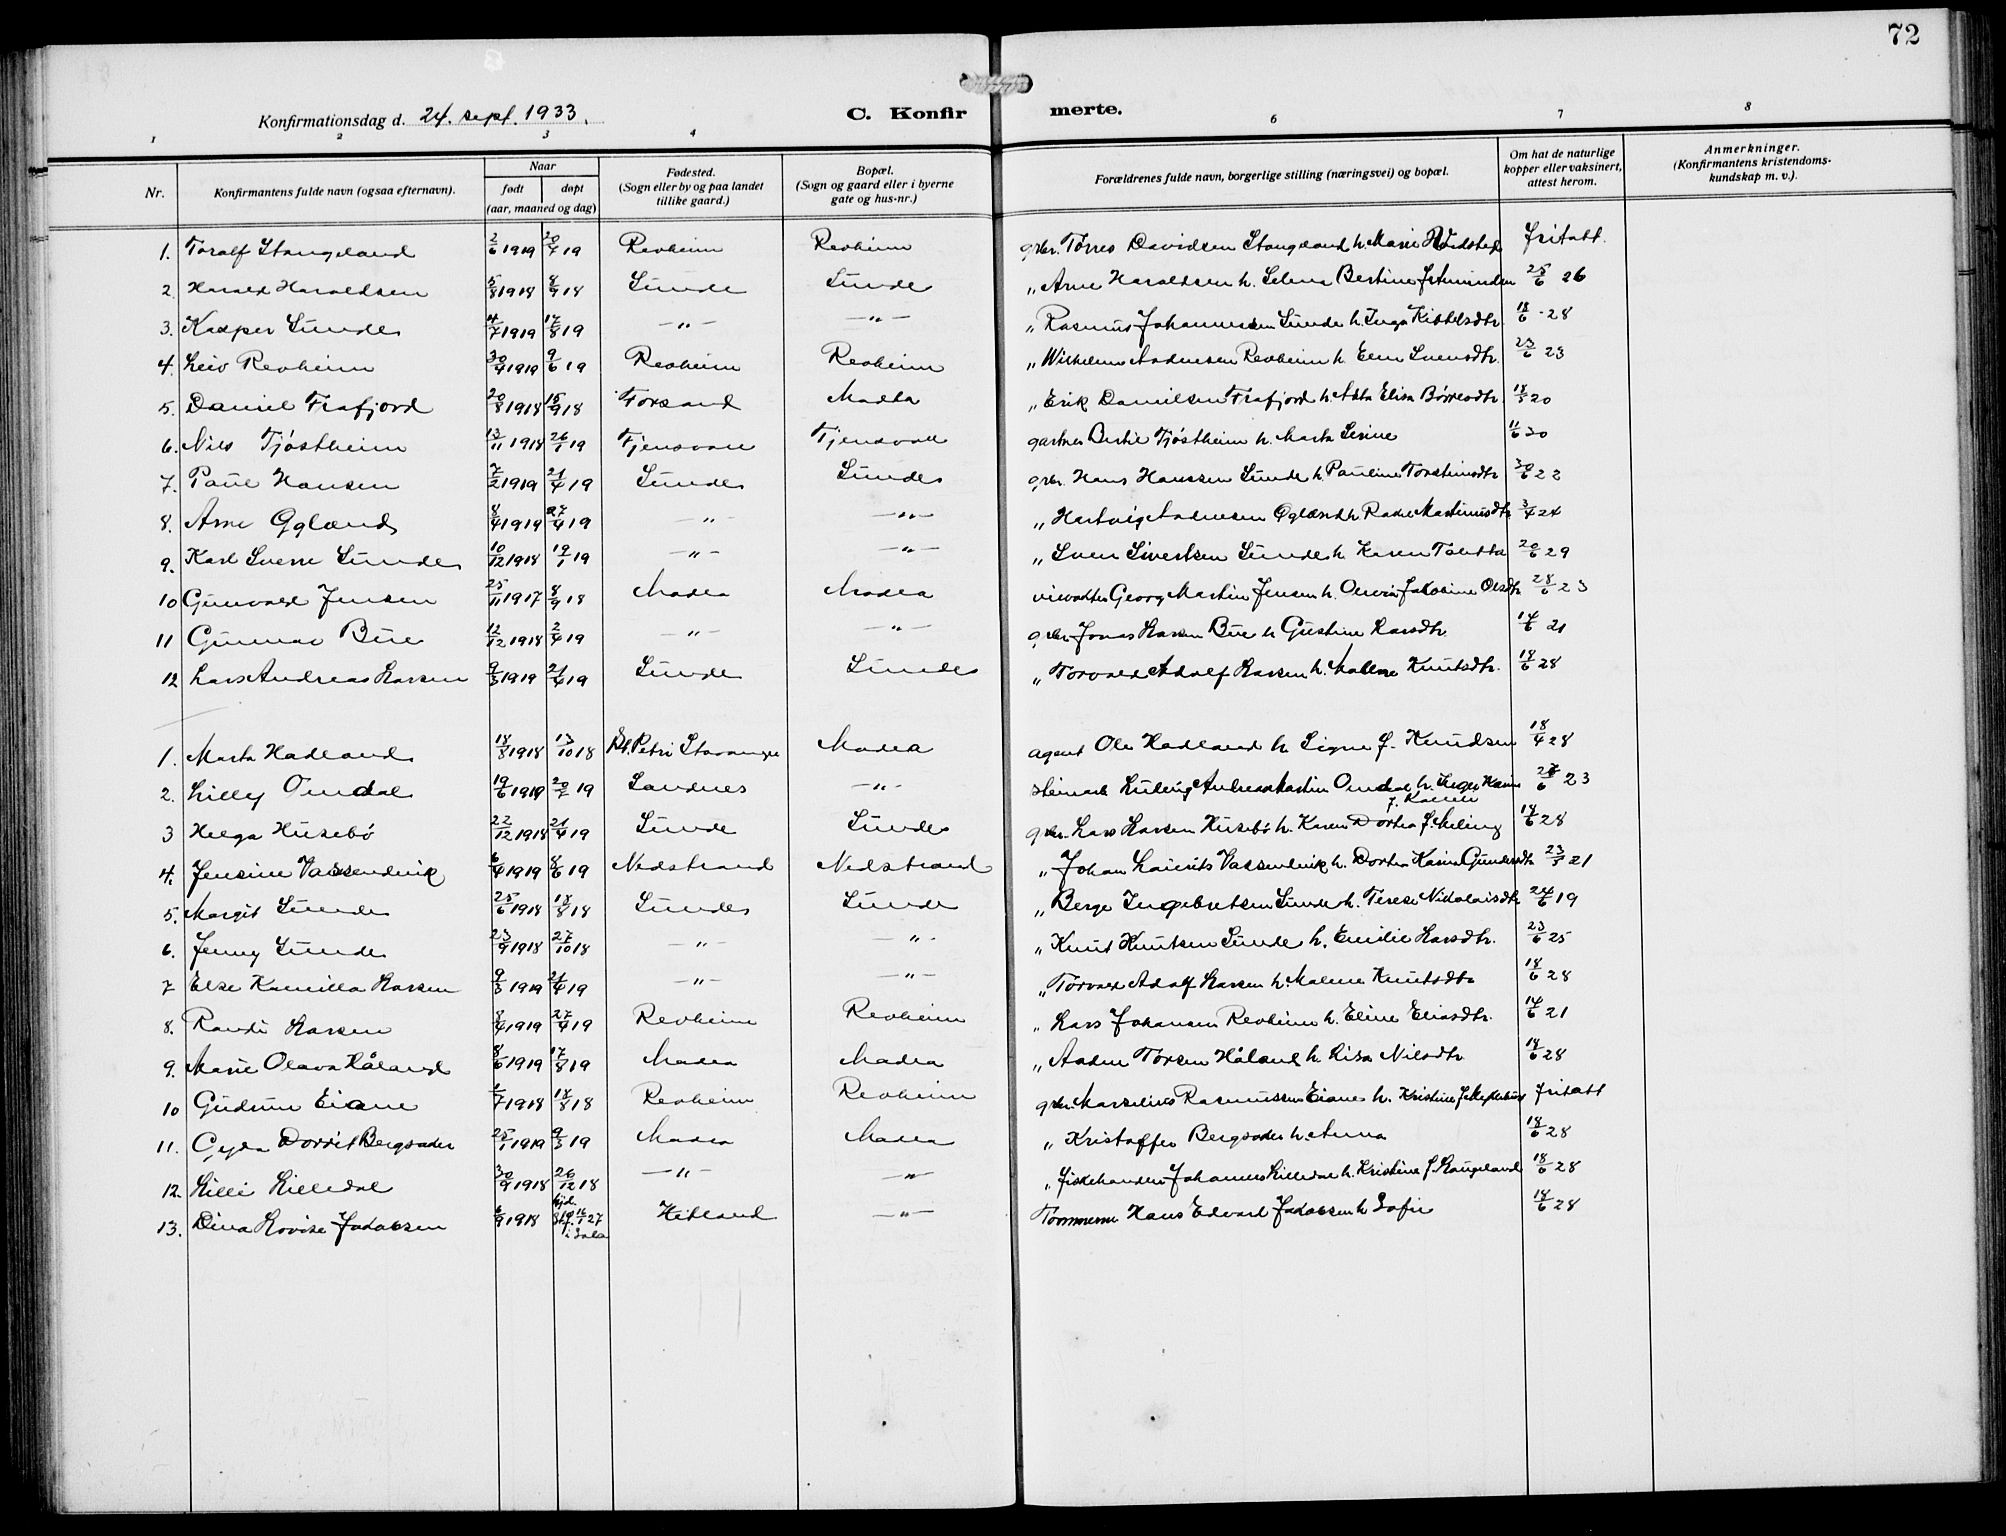 72
Konfirmationsdag d. 24. sept. 1933.
C. Konfir merte.
1 2 3 4 6 7 8
Nr. Konfirmantens fulde navn (ogsaa efternavn). Naar født døpt (aar, maaned og dag) Fødested. (Sogn eller by og paa landet tillike gaard.) Bopæl. (Sogn og gaard eller i byerne gate og hus-nr.) Forældrenes fulde navn, borgerlige stilling (næringsvei) og bopæl. Om hat de naturlige kopper eller vaksinert, attest herom. Anmerkninger. (Konfirmantens kristendoms-kundskap m. v.).
1. Toralf Stangeland 2/6 1919 20/7 19 Revheim Revheim gbr. Torres Davidsen Stangeland h. Marie fritatt.
2 Harald Haraldsen 5/8 1918 8/9 18 Sunde Sunde " Arne Haraldsen h. Selma Bertine 25/6 26
3. Kasper Sunde 4/7 1919 17/8 19 —"— —"— " Rasmus Johannessen Sunde h. Inga Kittelsdtr. 18/6 - 28
4. Leiv Revheim 30/4 1919 9/6 19 Revheim Revheim " Wilhelm Andersen Revheim h. Svensdtr. 23/6 23
5. Daniel Frafjord 20/8 1918 15/9 18 Forsand Madla " Erik Danielsen Frafjord h. Elisa Børresdtr. 18/5 20
6. Nils Tjøstheim 13/11 1918 26/1 19 Tjensvoll Tjensvoll gartner Bertil Tjøstheim h. Marta Serine 11/6 30
7. Paul Hansen 7/2 1919 21/4 19 Sunde Sunde gbr. Hans Hanssen Sunde h. Pauline Torsteinsdtr. 30/6 22
8. Arne Oglænd 8/4 1919 27/4 19 —"— —"— " Hartvig Andersen Oglænd h. Martinusdtr. 3/4 24
9. Karl Sverre Sunde 10/12 1918 19/1 19 —"— —"— " Sven Sivertsen Sunde h. Karen 20/6 29
10 Gunvald Jensen 25/11 1917 8/9 18 Madla Madla Georg Martin Jensen h. Jakobine Olsdtr. 28/6 23
11 Gunnar Bue 12/12 1918 2/4 19 —"— —"— gbr. Jonas Larsen Bue h. Gustine Larsdtr. 14/6 21
12 Lars Andreas Larsen 9/3 1919 21/4 19 Sunde Sunde " Torvald Adolf Larsen h. Malene Knutsdtr. 18/6 28
1. Marta Hadland 18/8 1918 13/10 18 St. Petri Stavanger Madla agent Ole Hadland h. Signe f. Knudsen 18/4 28
2. Lilly Omdal 19/6 1919 19 Sandnes —"— Andreas Martin Omdal h. Inger Karin 23
3 Helga Husebø 22/12 1918 21/4 19 Sunde Sunde gbr. Lars Larsen Husebø h. Karen Dortea f. Meling 18/6 28
4. Jensine Vassendvik 6/4 1919 8/6 19 Nedstrand Nedstrand " Johan Laurits Vassendvik h. Dortea Karine Gundersdtr. 23/5 21
5. Margit Sunde 25/6 1918 18/8 18 Sunde Sunde " Berge Ingebretsen Sunde h. Terese Nikolaisdtr. 24/6 19
6. Jenny Sunde 23/9 1918 27/10 18 —"— —"— " Knut Knutsen Sunde h. Emilie Larsdtr. 23/6 25
7 Else Kamilla Larsen 9/3 1919 21/4 19 —"— —"— " Torvald Adolf Larsen h. Malene Knutsdtr. 18/6 28
8. Randi Larsen 8/4 1919 27/4 19 Revheim Revheim " Lars Johansen Revheim h. Eline Eliasdtr. 14/6 21
9. Marie Olava Håland 8/6 1919 17/8 19 Madla Madla " Torsen Håland h. Lisa Nilsdtr. 18/6 28
10 Gudrun Eiane 1/7 1918 18/8 18 Revheim Revheim gbr. Marselius Rasmussen Eiane h. Kristine fritatt
11. Gyda Dorrit Bergsaker 25/1 1919 9/3 19 Madla Madla " Kristoffer Bergsaker h. Anna 18/6 28
12. Lilli Lilledal 30/9 1918 26/12 18 —"— —"— " fiskehandler Johannes Lilledal h. Kristine f. Haugeland 18/6 28
13. Dina Lovise Jakobsen 6/9 1918 hjd. 27 Hetland —"— Tømmerm. Hans Edvard Jakobsen h. Sofie 18/6 28